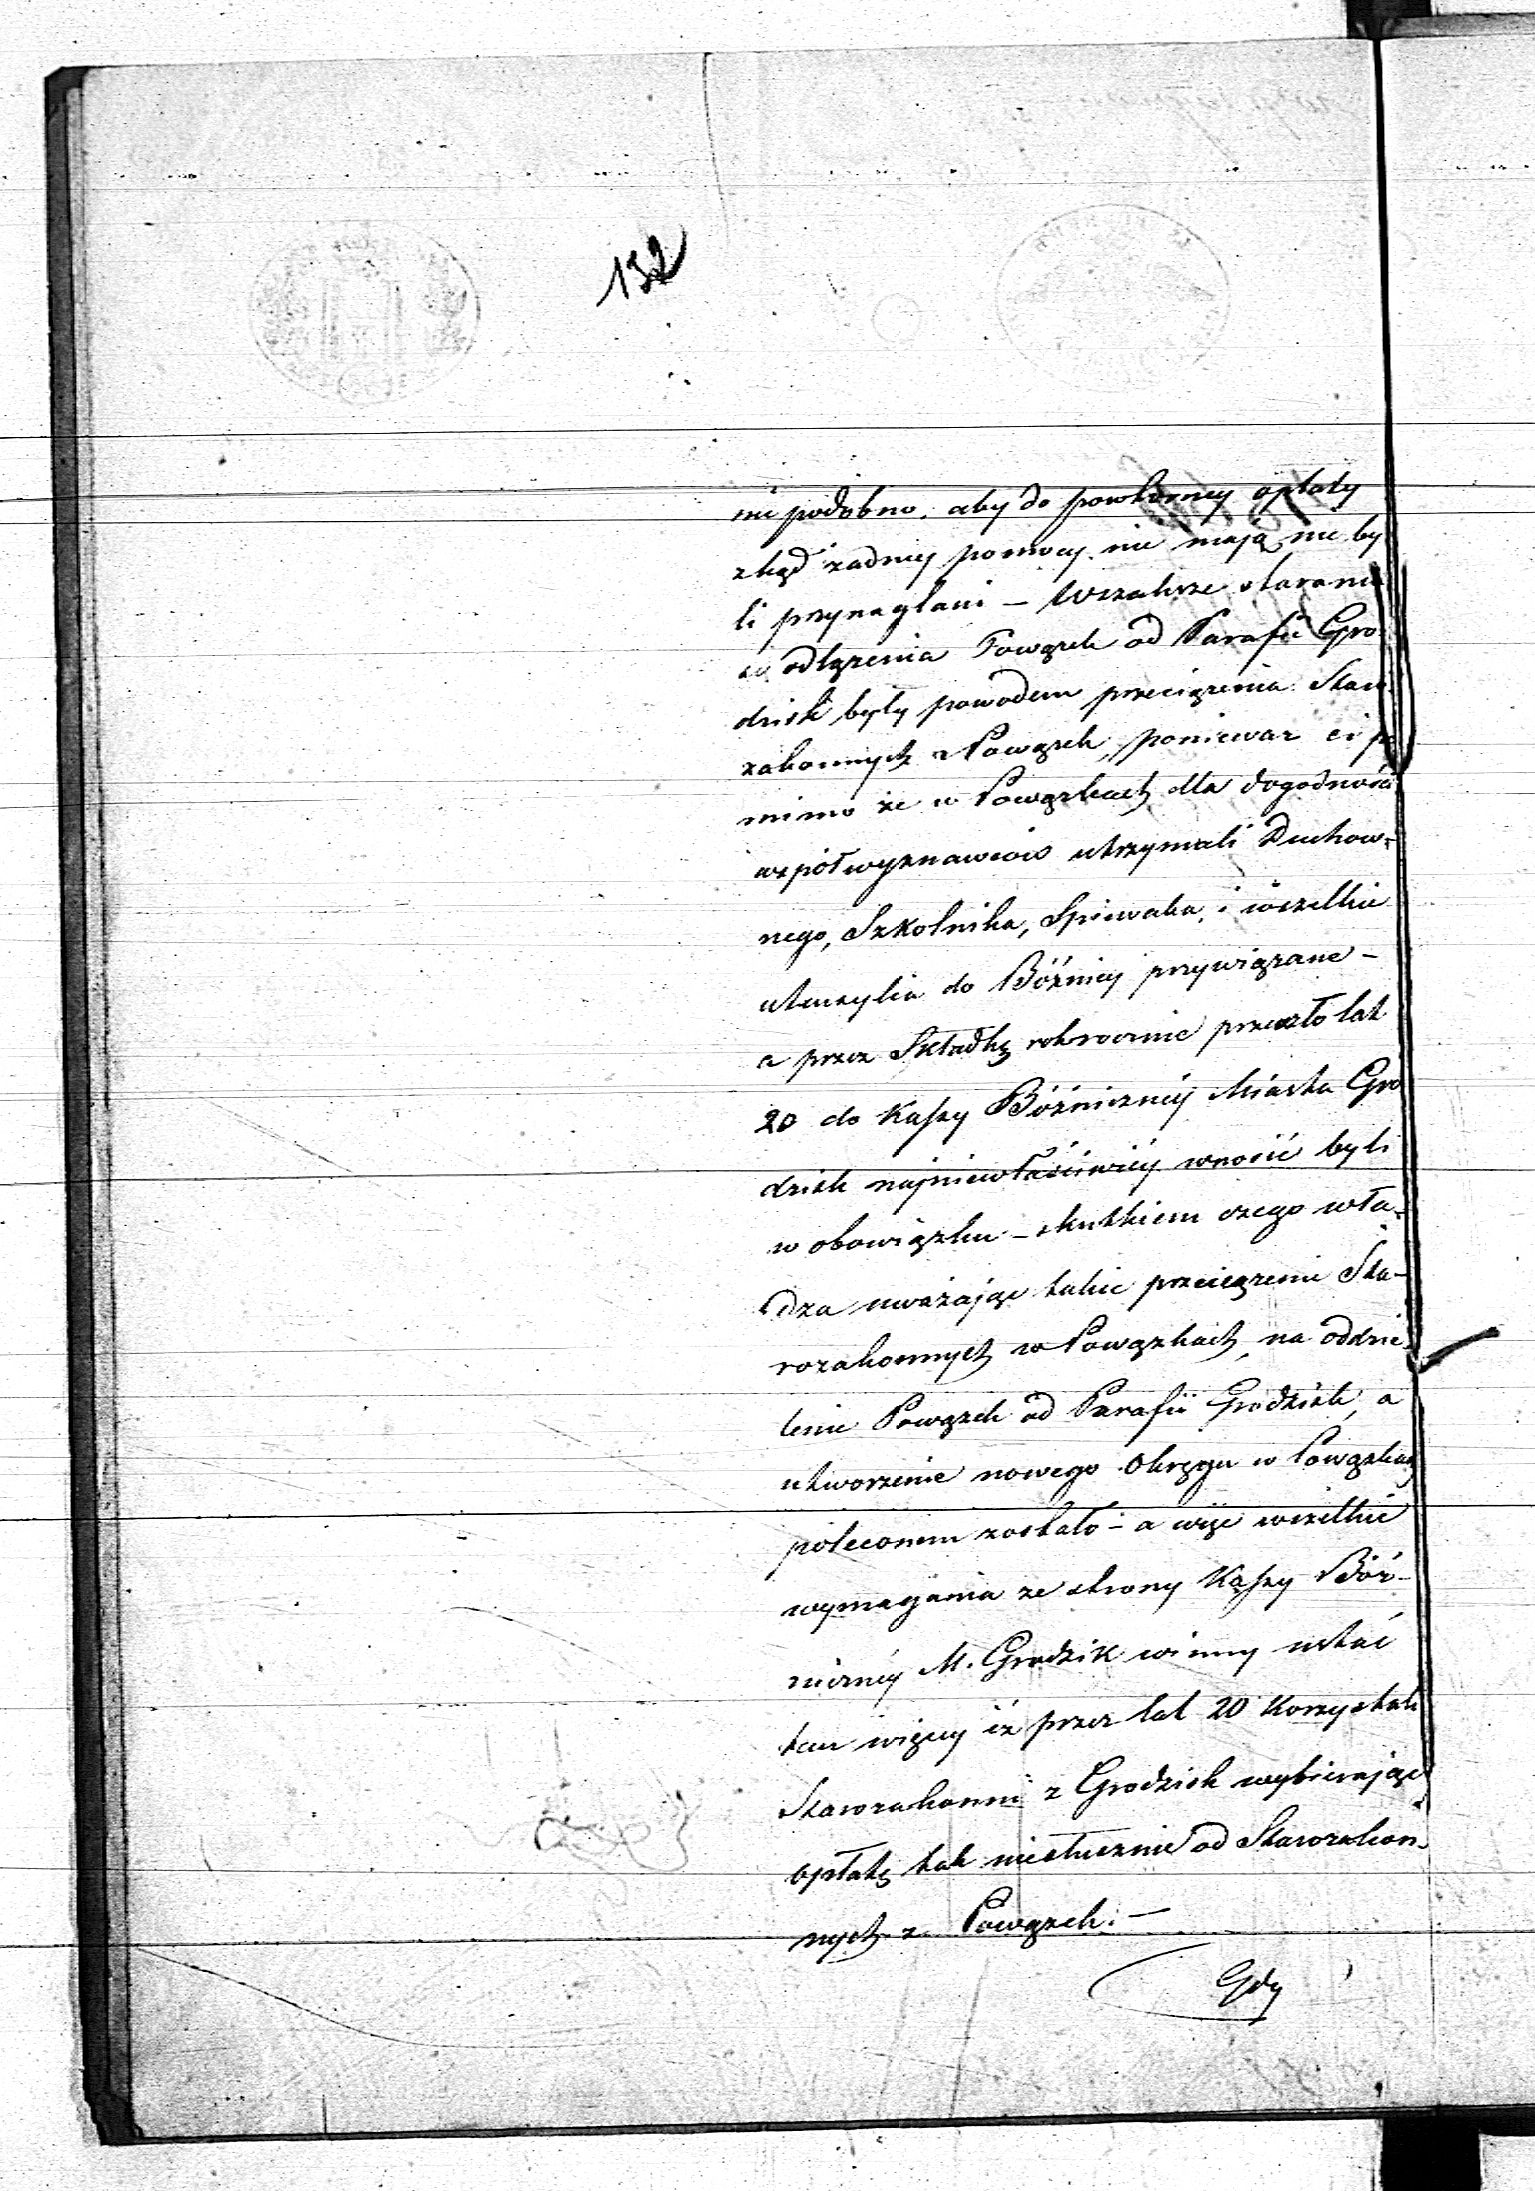 132
nie podobno, aby do powtórnej opłaty
zkąd żadnej pomocy nie mają nie by
li przynaglani – Wszakże starania
o odłązenia Powązek od Parafii Gro
dzisk były powodem przeciążenia Staro
zakonnych z Powązek, ponieważ ci po
mimo że w Powązkach dla dogodności
współwyznawców utrzymali Duchow-
nego, Szkolnika, Spiewaka, i wszelkie
utensylia do Bóżnicy przywiązane –
a przez Składkę rokrocznie przeszło lat
20 do Kassy Bóżnicznéj Miasta Gro
dzisk najniewłaściwiéj wnosić byli
w obowiązku – skutkiem czego wła-
dza uważając takie przeciążenie Sta-
rozakonnych w Powązkach, na oddzie-
lenie Powązek od Parafii Grodzisk, a
utworzenie nowego Okręgu w Powązkach
poleconem zostało – a więc wszelkie
wymagania ze strony Kassy Bóż-
nicznéj M. Grodzisk winny ustać
tem więcej iż przez lat 20 Korzystali
Starozakonni z Grodzisk wybierając
opłatę tak niesłusznie od Starozakon-
nych z Powązek. –
Gdy